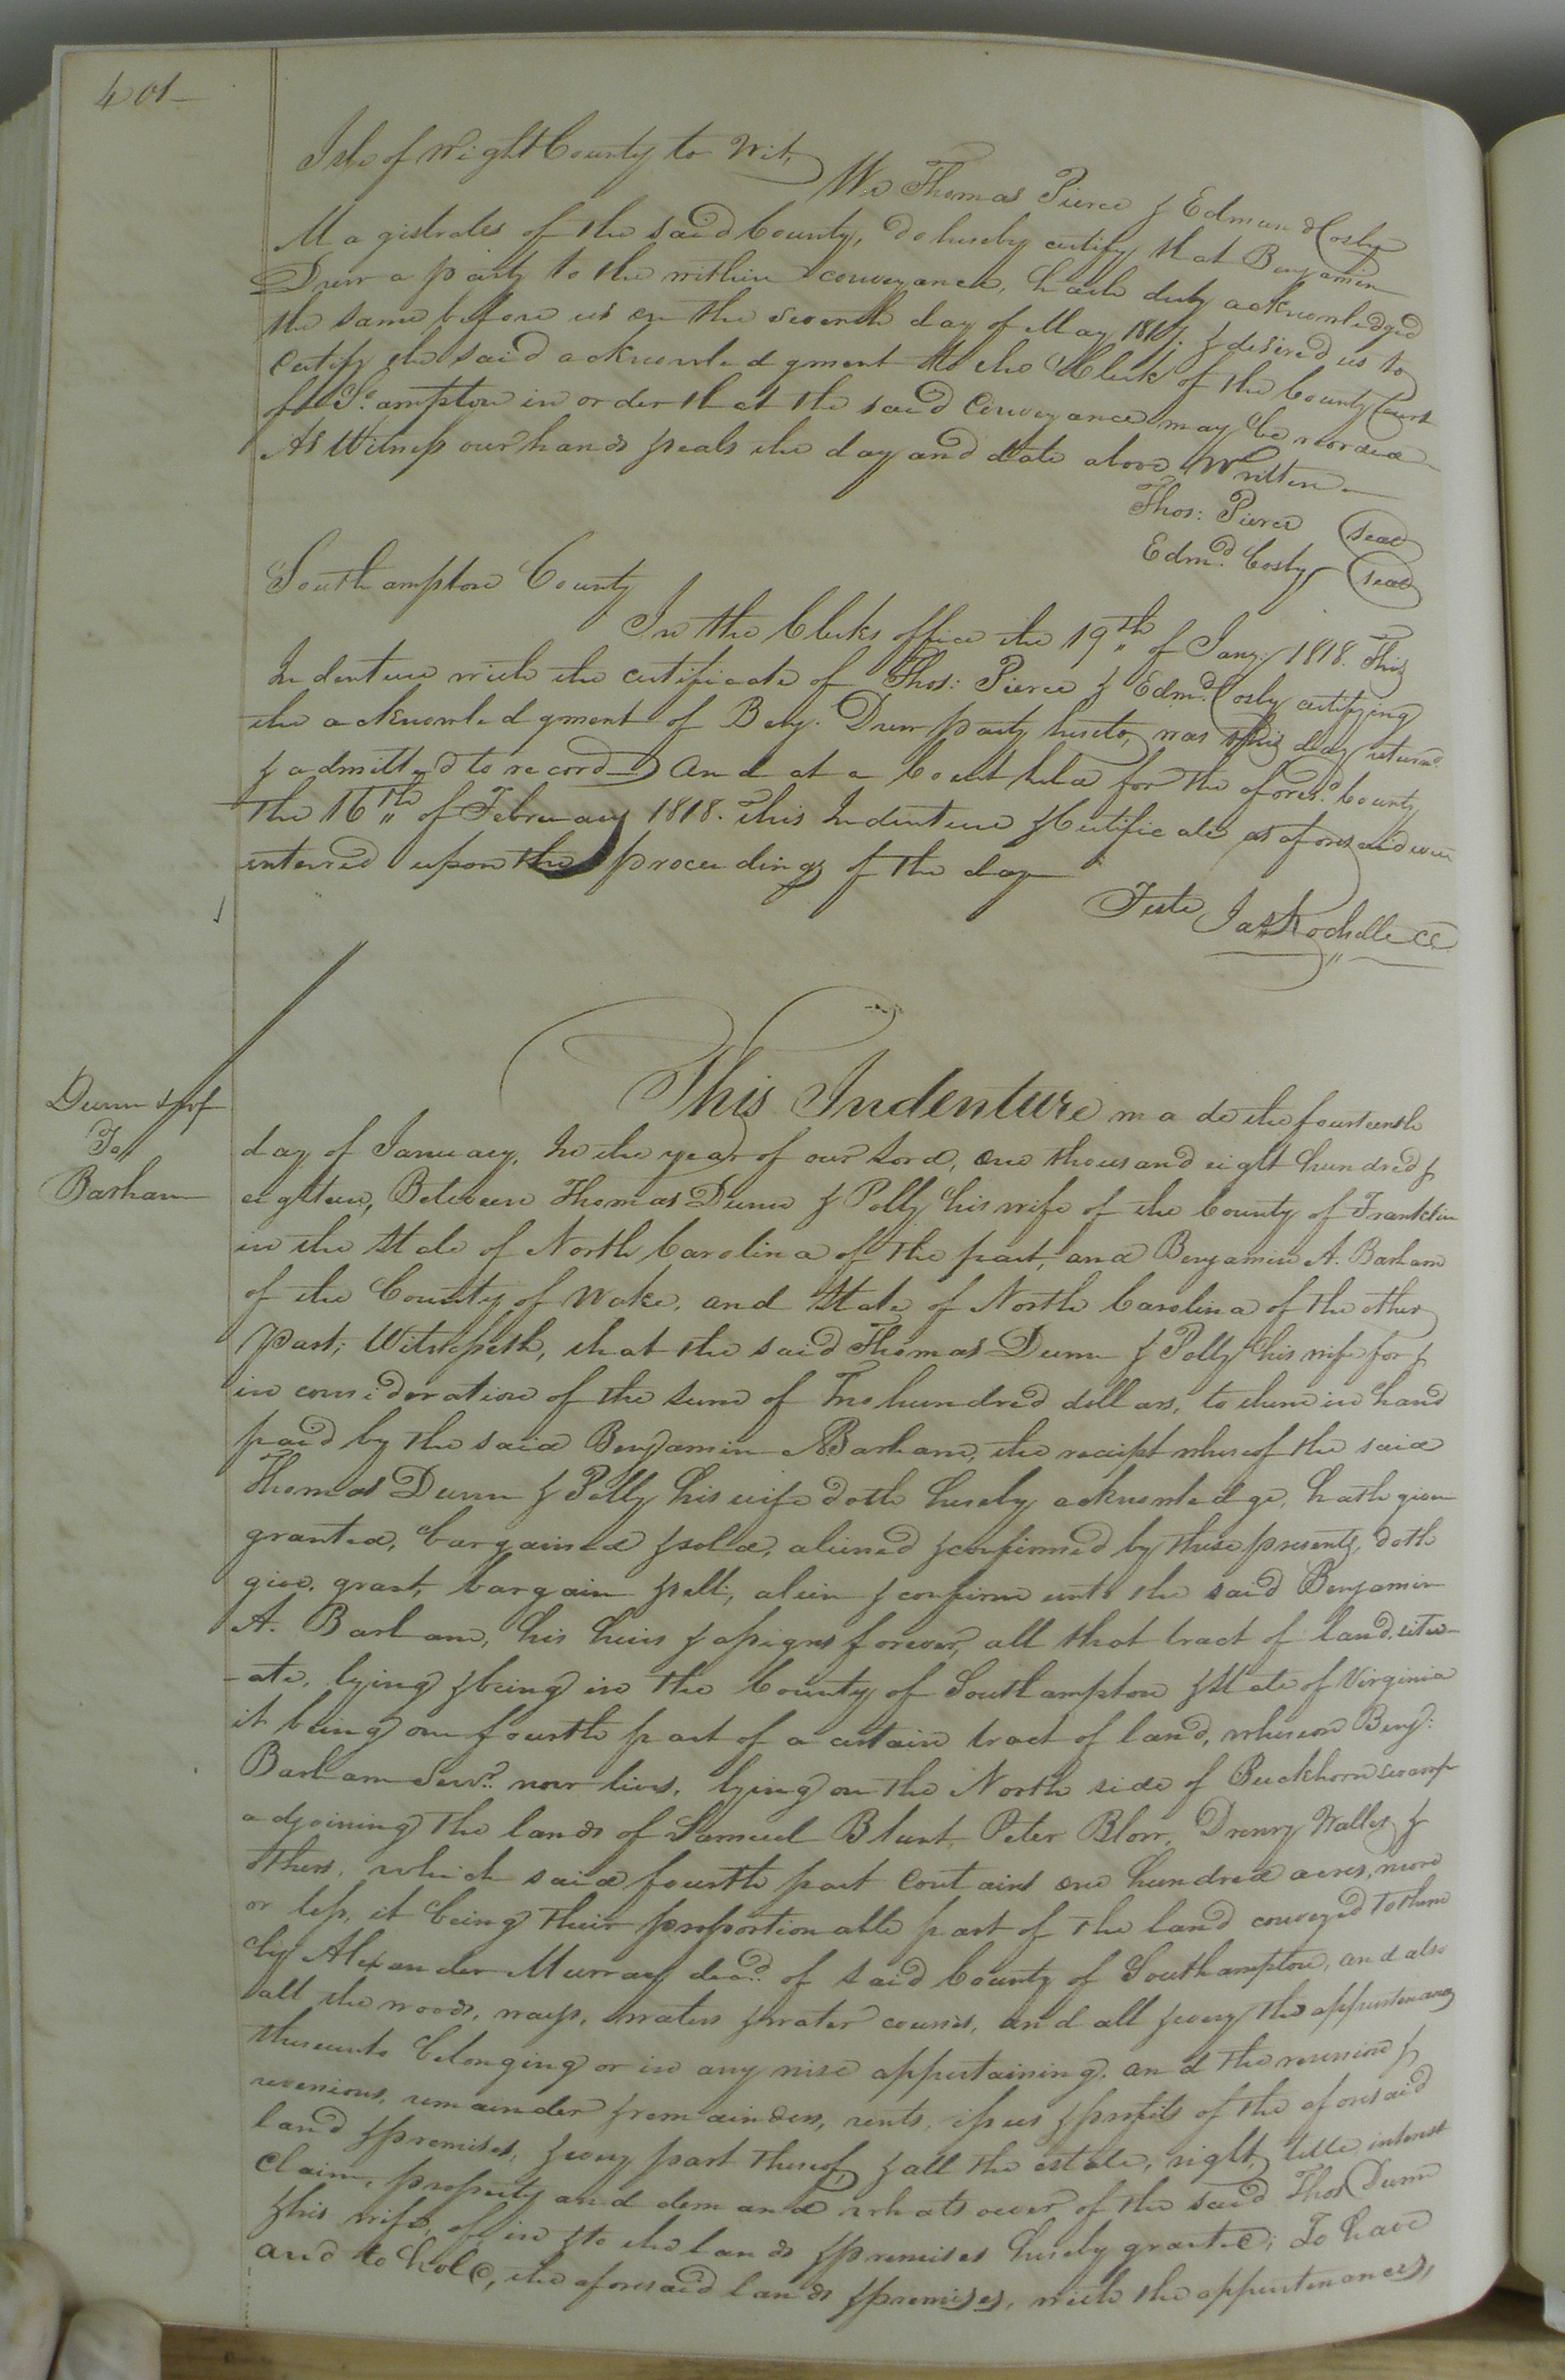 401
Isle of Wight County to Wit,
We Thomas Pierce & Edmund Cosby
Magistrates of the said County, do hereby certify that Benjamin
Drew a party to the within conveyance, hath duly acknowledged
the same before us on the seventh day of May 1817. & desired us to
Certify the said acknowledgment to the Clerk of the County Court
of So. ampton in order that the said Conveyance may be recorded
As Witness our hands & seals the day and date above Written
Thos: Pierce seal
Edmd. Cosby seal
Southampton County
In the Clerks office the 19th of Jany. 1818. This
Indenture with the certificate of Thos: Pierce & Edmd. Cosby certifying
the acknowledgment of Benj. Drew party hereto, was this day returnd.
& admitted to record And at a Court held for the aforesd. County
the 16th of February 1818. This Indenture & Certificate as aforesaid were
entered upon the proceedings of the day
Teste Jas Rochelle CC
Dunn & wf
To
Barham
This Indenture made the fourteenth
day of January, In the year of our Lord, one thousand eight hundred &
eighteen, Between Thomas Dunn & Polly his wife of the County of Franklin
in the State of North Carolina of the part, and Benjamin A. Barham
of the County of Wake, and State of North Carolina of the other
part; Witnesseth, that the said Thomas Dunn & Polly his wife for &
in consideration of the sum of Two hundred dollars, to them in hand
paid by the said Benjamin A Barham, the receipt whereof the said
Thomas Dunn & Polly his wife doth hereby acknowledge, hath given
granted, bargained & sold, aliened & confirmed by these presents, doth
give, grant, bargain & sell, alien & confirm unto the said Benjamin
A. Barham, his heirs & assigns forever, all that tract of land, situ-
-ate, lying & being in the County of Southampton & State of Virginia
it being one fourth part of a certain tract of land, whereon Benj:
Barham Senr. now lives, lying on the North side of Buckhorn swamp
adjoining the lands of Samuel Blunt, Peter Blow, Drewry Waller &
others, which said fourth part Contains one hundred acres, more
or less, it being their proportionable part of the land conveyed to them
by Alexander Murray decd. of said County of Southampton, and also
all the woods, ways, waters & water courses, and all & every the appurtenances
thereunto belonging or in any wise appertaining, and the reversion &
reversions, remainder & remainders, rents, issues & profits of the aforesaid
land & premises, & every part thereof, & all the estate, right, title, interest
Claim, property and demand whatsoever of the said Thos Dunn
& his wife, of, in & to the lands & premises hereby granted; To have
and to hold, the aforesaid lands & premises, with the appurtenances,